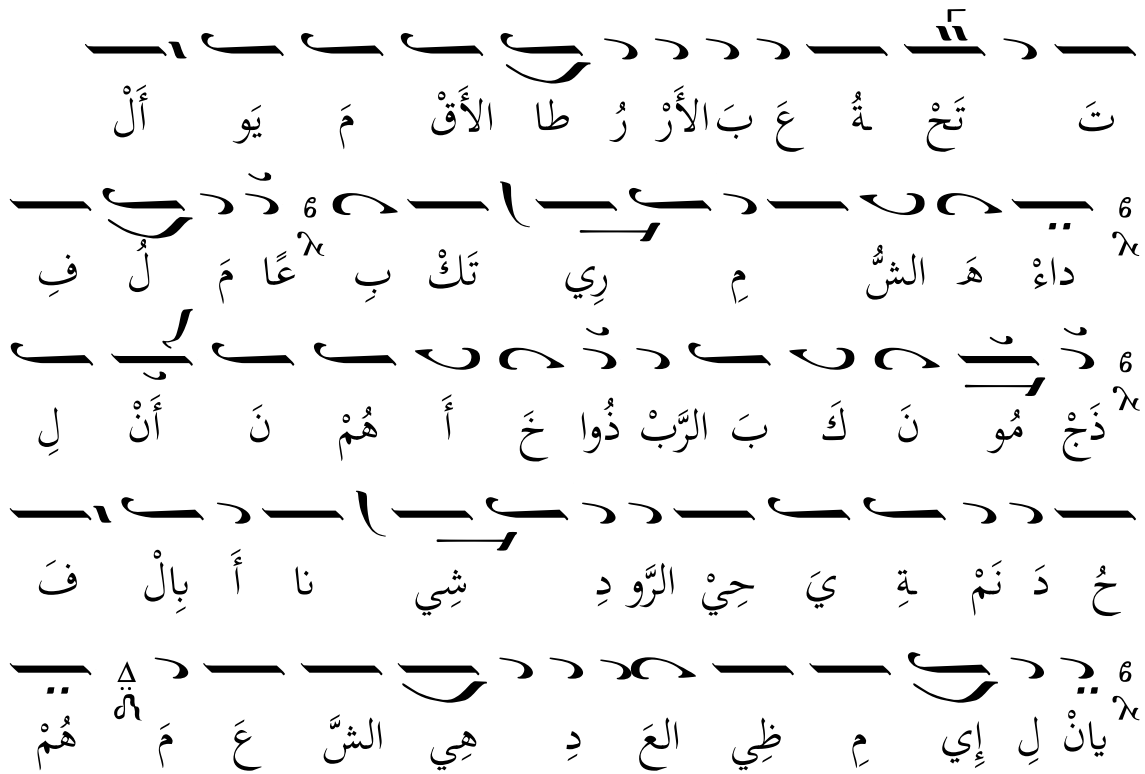 أَلْ يَو مَ الأَقْ طا رُ الأَرْ بَ عَ ةُ تَحْ تَ
فِ لُ مَ عًا بِ تَكْ رِي مِ الشُّ هَ داءْ
لِ أَنْ نَ هُمْ أَ خَ ذُوا الرَّبْ بَ كَ نَ مُو ذَجْ
فَ بِالْ أَ نا شِي دِ الرَّو حِيْ يَ ةِ نَمْ دَ حُ
هُمْ مَ عَ الشَّ هِي دِ العَ ظِي مِ إِي لِ يانْ